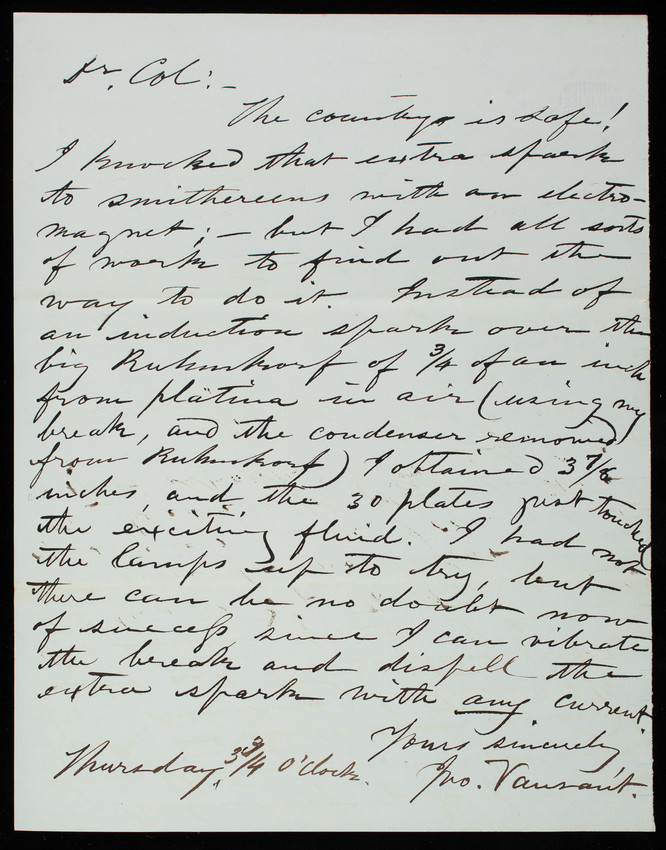 Dr. Col:—
The country is safe!
I knocked that extra spark
to smithereens with an electro-
magnet; — but I had all sorts
of work to find out the
way to do it. Instead of
an induction spark over the
big Ruhmkorf of 3/4 of an inch
from platina in air (using my
break, and the condenser removed
from Ruhmkorf) I obtained 3 7/8
inches, and the 30 plates just touched
the exciting fluid. I had not
the lamps up to try but
there can be no doubt now
of success since I can vibrate
the break and dispell the
extra spark with any current.
Yours sincerely,
Thursday, 3 3/4 O'Clock. Jno. Vansant.